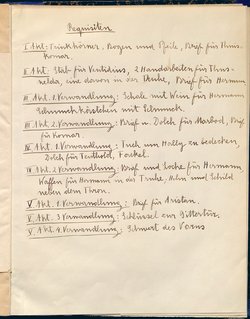 Requisiten
I Akt: Trinkhörner, Bogen und Pfeile, Brief für Thuis-
komar.
II Akt: Stab für Ventidius, 2 Handarbeiten für Thus-
nelda, eine davon in der Truhe, Brief für Hermann
III Akt. 1. Verwandlung: Schale mit Wein für Hermann
Schmuckkästchen mit Schmuck.
III Akt. 2. Verwandlung: Brief u. Dolch für Marbod, Brief
für Komar.
IV Akt. 1. Verwandlung: Tuch um Hally zu bedecken,
Dolch für Teuthold, Fackel.
IV Akt. 2. Verwandlung: Brief und Locke für Hermann,
Waffen für Hermann in der Truhe. Helm und Schild
neben dem Thron.
V Akt. 1. Verwandlung: Brief für Aristan.
V Akt. 3. Verwandlung: Schlüssel zur Gittertür.
V Akt. 4. Verwandlung: Schwert des Varus